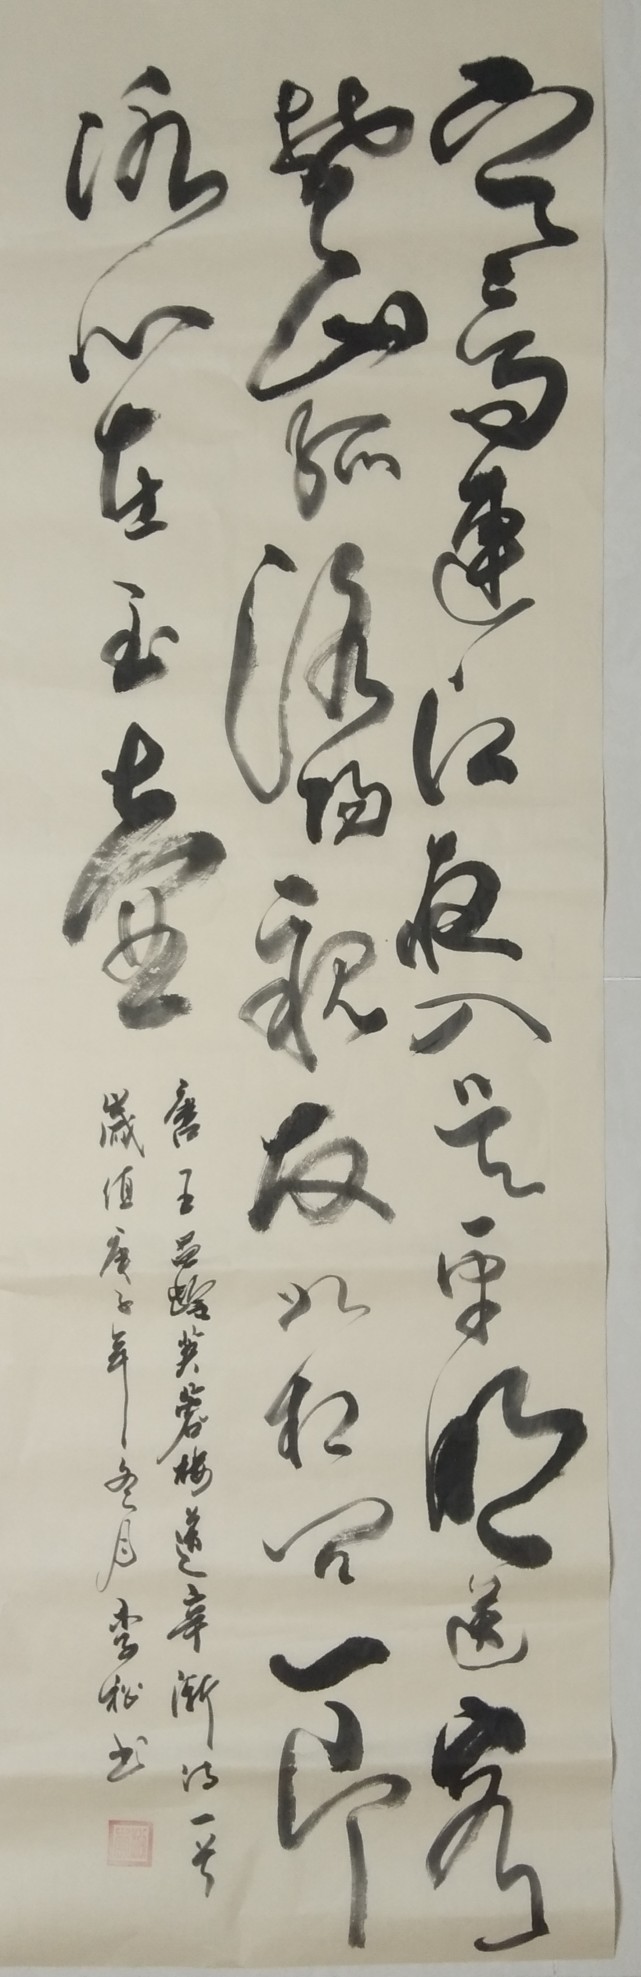 寒雨連江夜入吴平明送客
楚山孤洛陽親友如相问一片
冰心在玉壺
唐王昌齡芙蓉樓送辛漸詩一首
歲值庚子年冬月李书